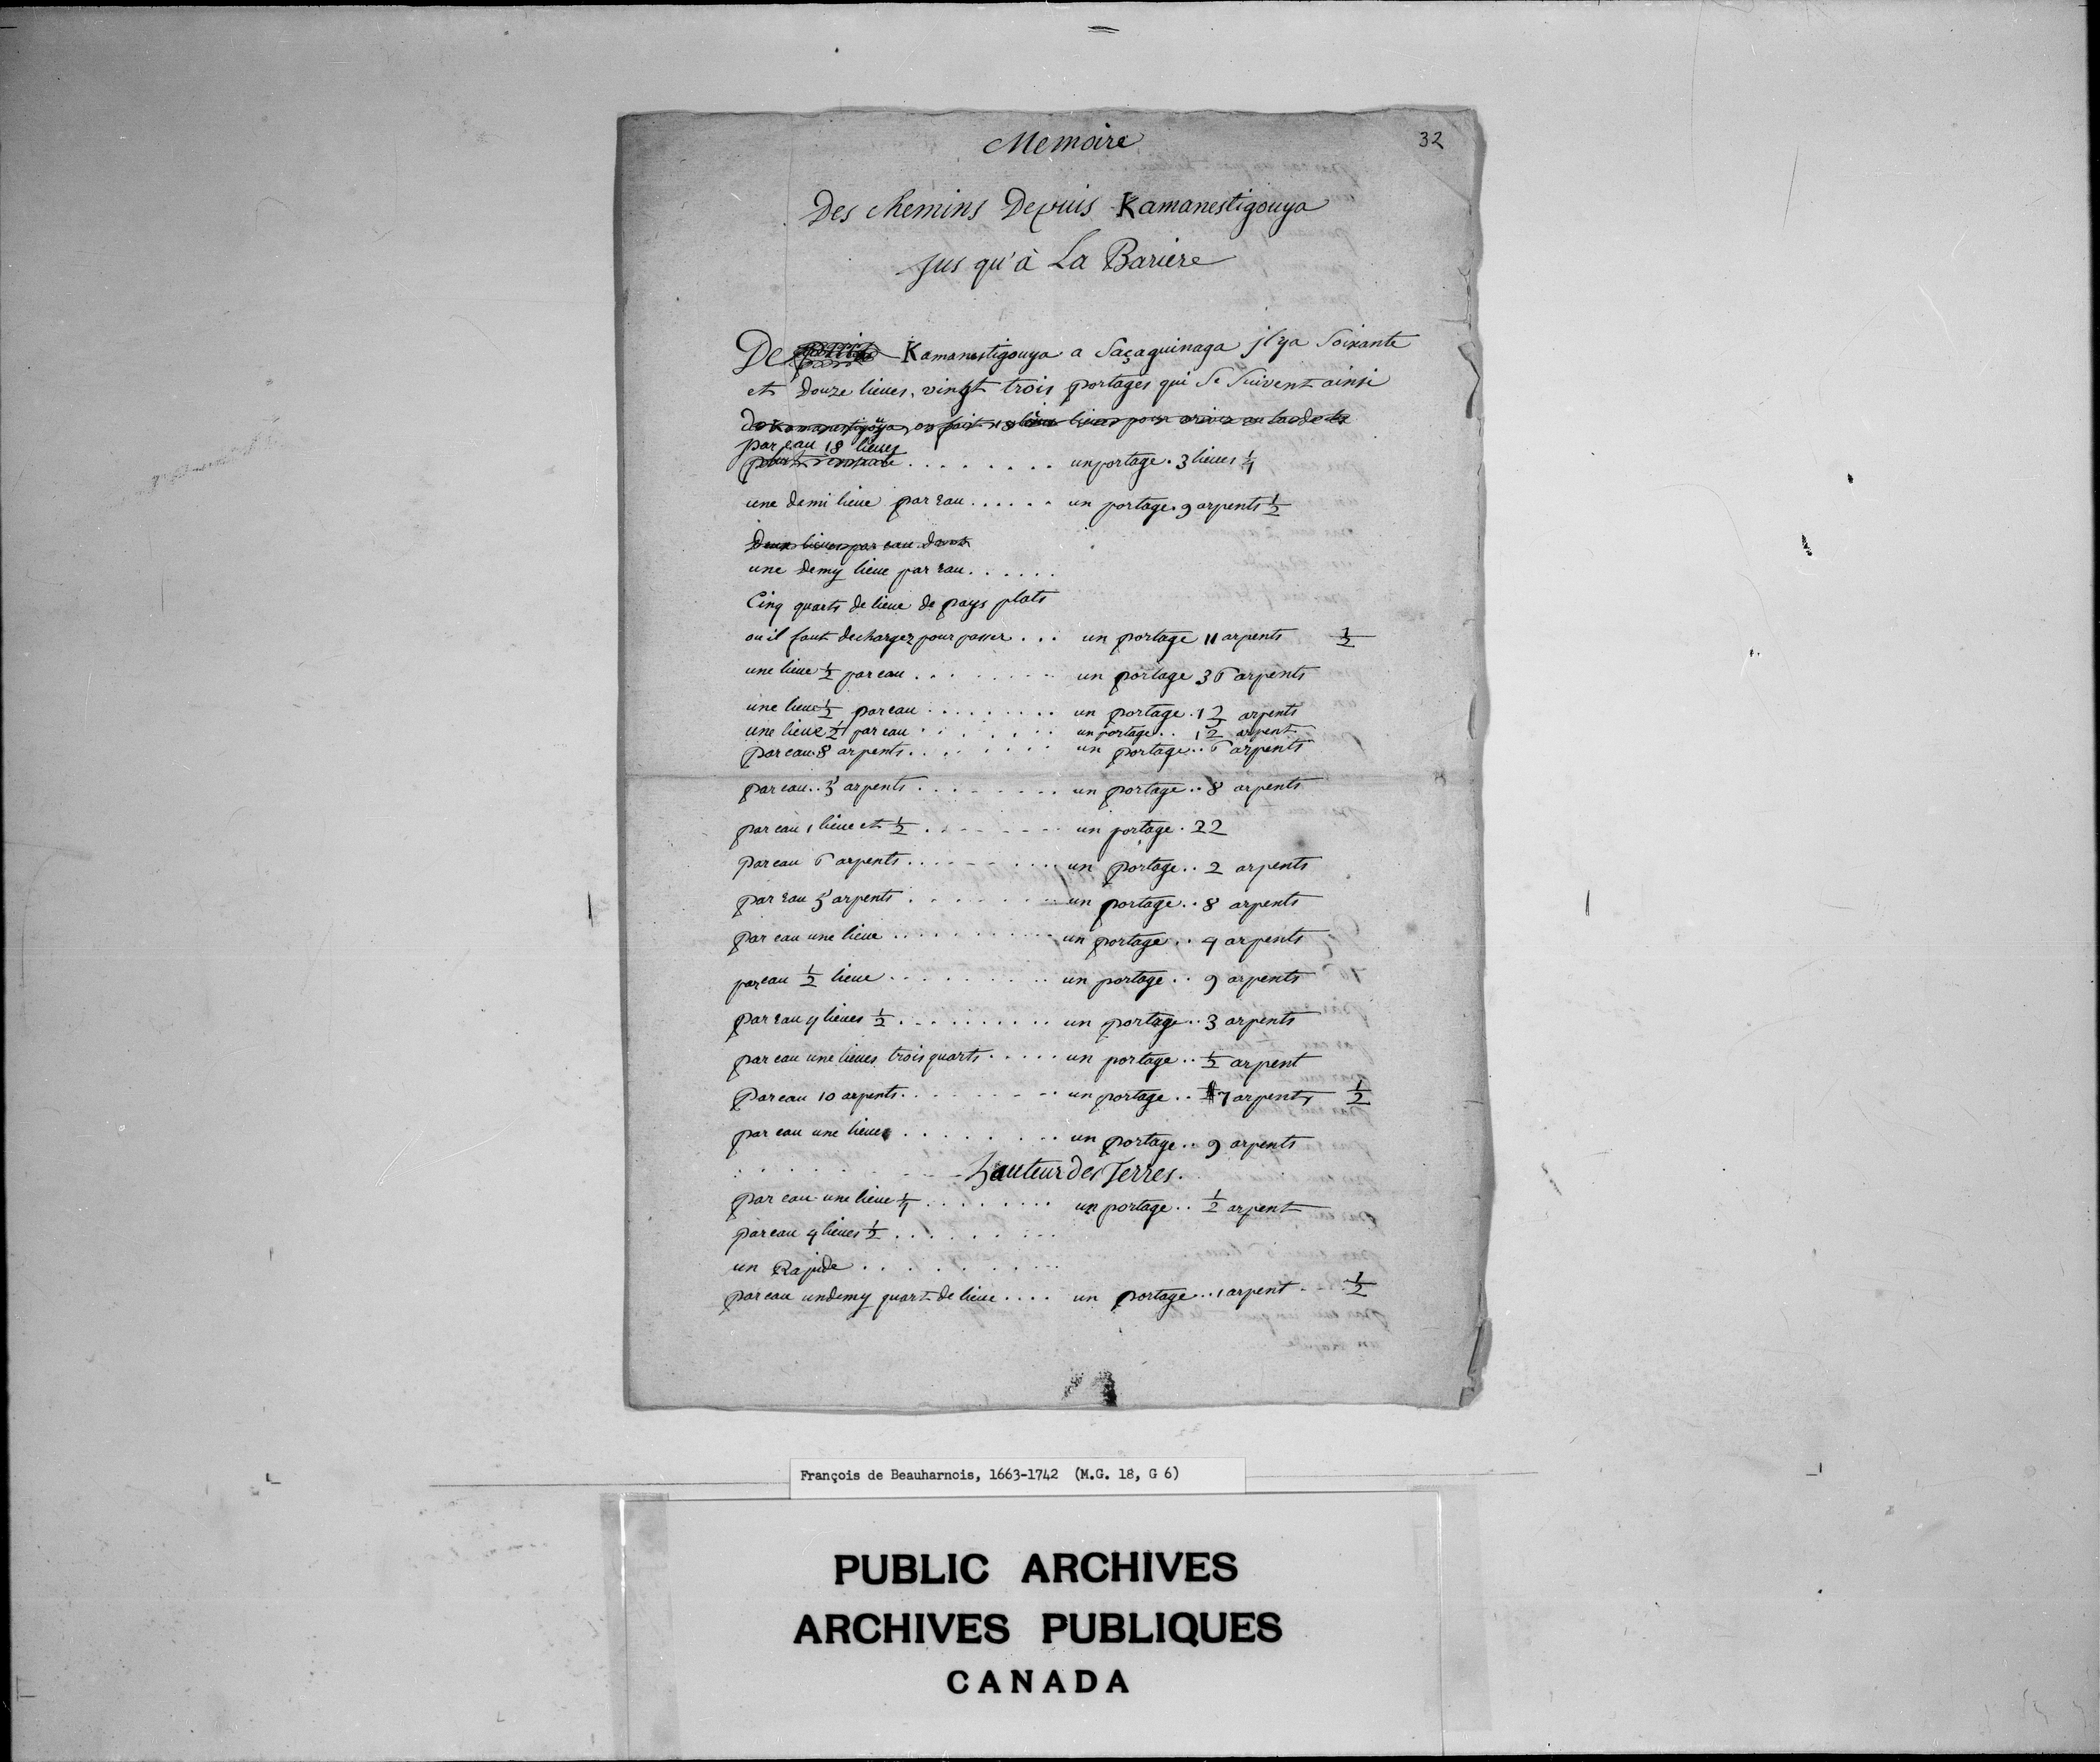 Memoire
32
Des chemins Depuis Kamanestigouya
Jus qu'à La Bariere
De Kamanestigouya a Saçaguinaga jlya Soixante
et Douze lieues. vingt trois portages qui Se Suivent ainsi
de Kamanestigoüya on fait 18 lieues pour ariver au bas de la
par eau 18 lieues
. . . . . . . . un portage . 3 lieues 1/4
une demi lieue par eau . . . . . . un portage . 9 arpents 1/2
Deux lieues par eau deux
une demy lieue par eau . . . . . .
Cinq quarts de lieue de pays plats
ou il faut decharger pour passer . . . un portage 11 arpents 1/2
une lieue 1/2 par eau . . . . . . . . un portage 36 arpents
une lieue 1/2 par eau . . . . . . . . un portage . 1 2/3 arpents
une lieue 1/2 par eau . . . . . . . un portage . . 12 arpent
par eau 8 arpents . . . . . . . . un portage . . 6 arpents
par eau . . 5 arpents . . . . . . . . un portage . . 8 arpents
par eau 1 lieue et 1/2 . . . . . . . . un portage . 22
par eau 6 arpents . . . . . . . . . un portage . . 2 arpents
par eau 5 arpents . . . . . . . . . un portage . . 8 arpents
par eau une lieue . . . . . . . . . . un portage . . 4 arpents
par eau 1/2 lieue . . . . . . . . . . un portage . . 9 arpents
par eau 4 lieues 1/2 . . . . . . . . . . un portage . . 3 arpents
par eau une lieues trois quarts . . . . . un portage . . 1/2 arpent
Par eau 10 arpents . . . . . . . . . un portage . . 7 arpents 1/2
par eau une lieue . . . . . . . . . un portage . . 9 arpents
hauteur des Terres.
par eau une lieue 1/4 . . . . . . . . un portage . . 1/2 arpent
par eau 4 lieues 1/2 . . . . . . . . .
un Rapide . . . . . . . . . .
par eau un demy quart de lieue . . . . un portage . . 1 arpent . . 1/2
François de Beauharnois, 1663-1742 (M.G. 18, G 6)
PUBLIC ARCHIVES
ARCHIVES PUBLIQUES
CANADA